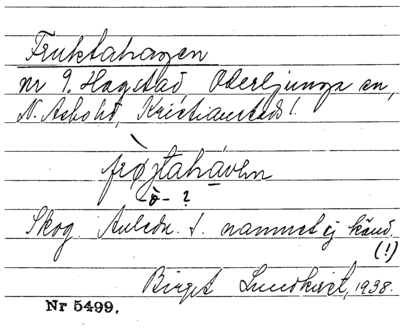 Fruktahagen
nr 9. Hagstad, Oderljunga sn,
N. Åsbohd, Kristianstads l.
frøjtahávhn
ò- ?
Skog. Anledn. t. namnet ej känd.
(!)
Birget Lundkvist, 1938.
Nr 5499.